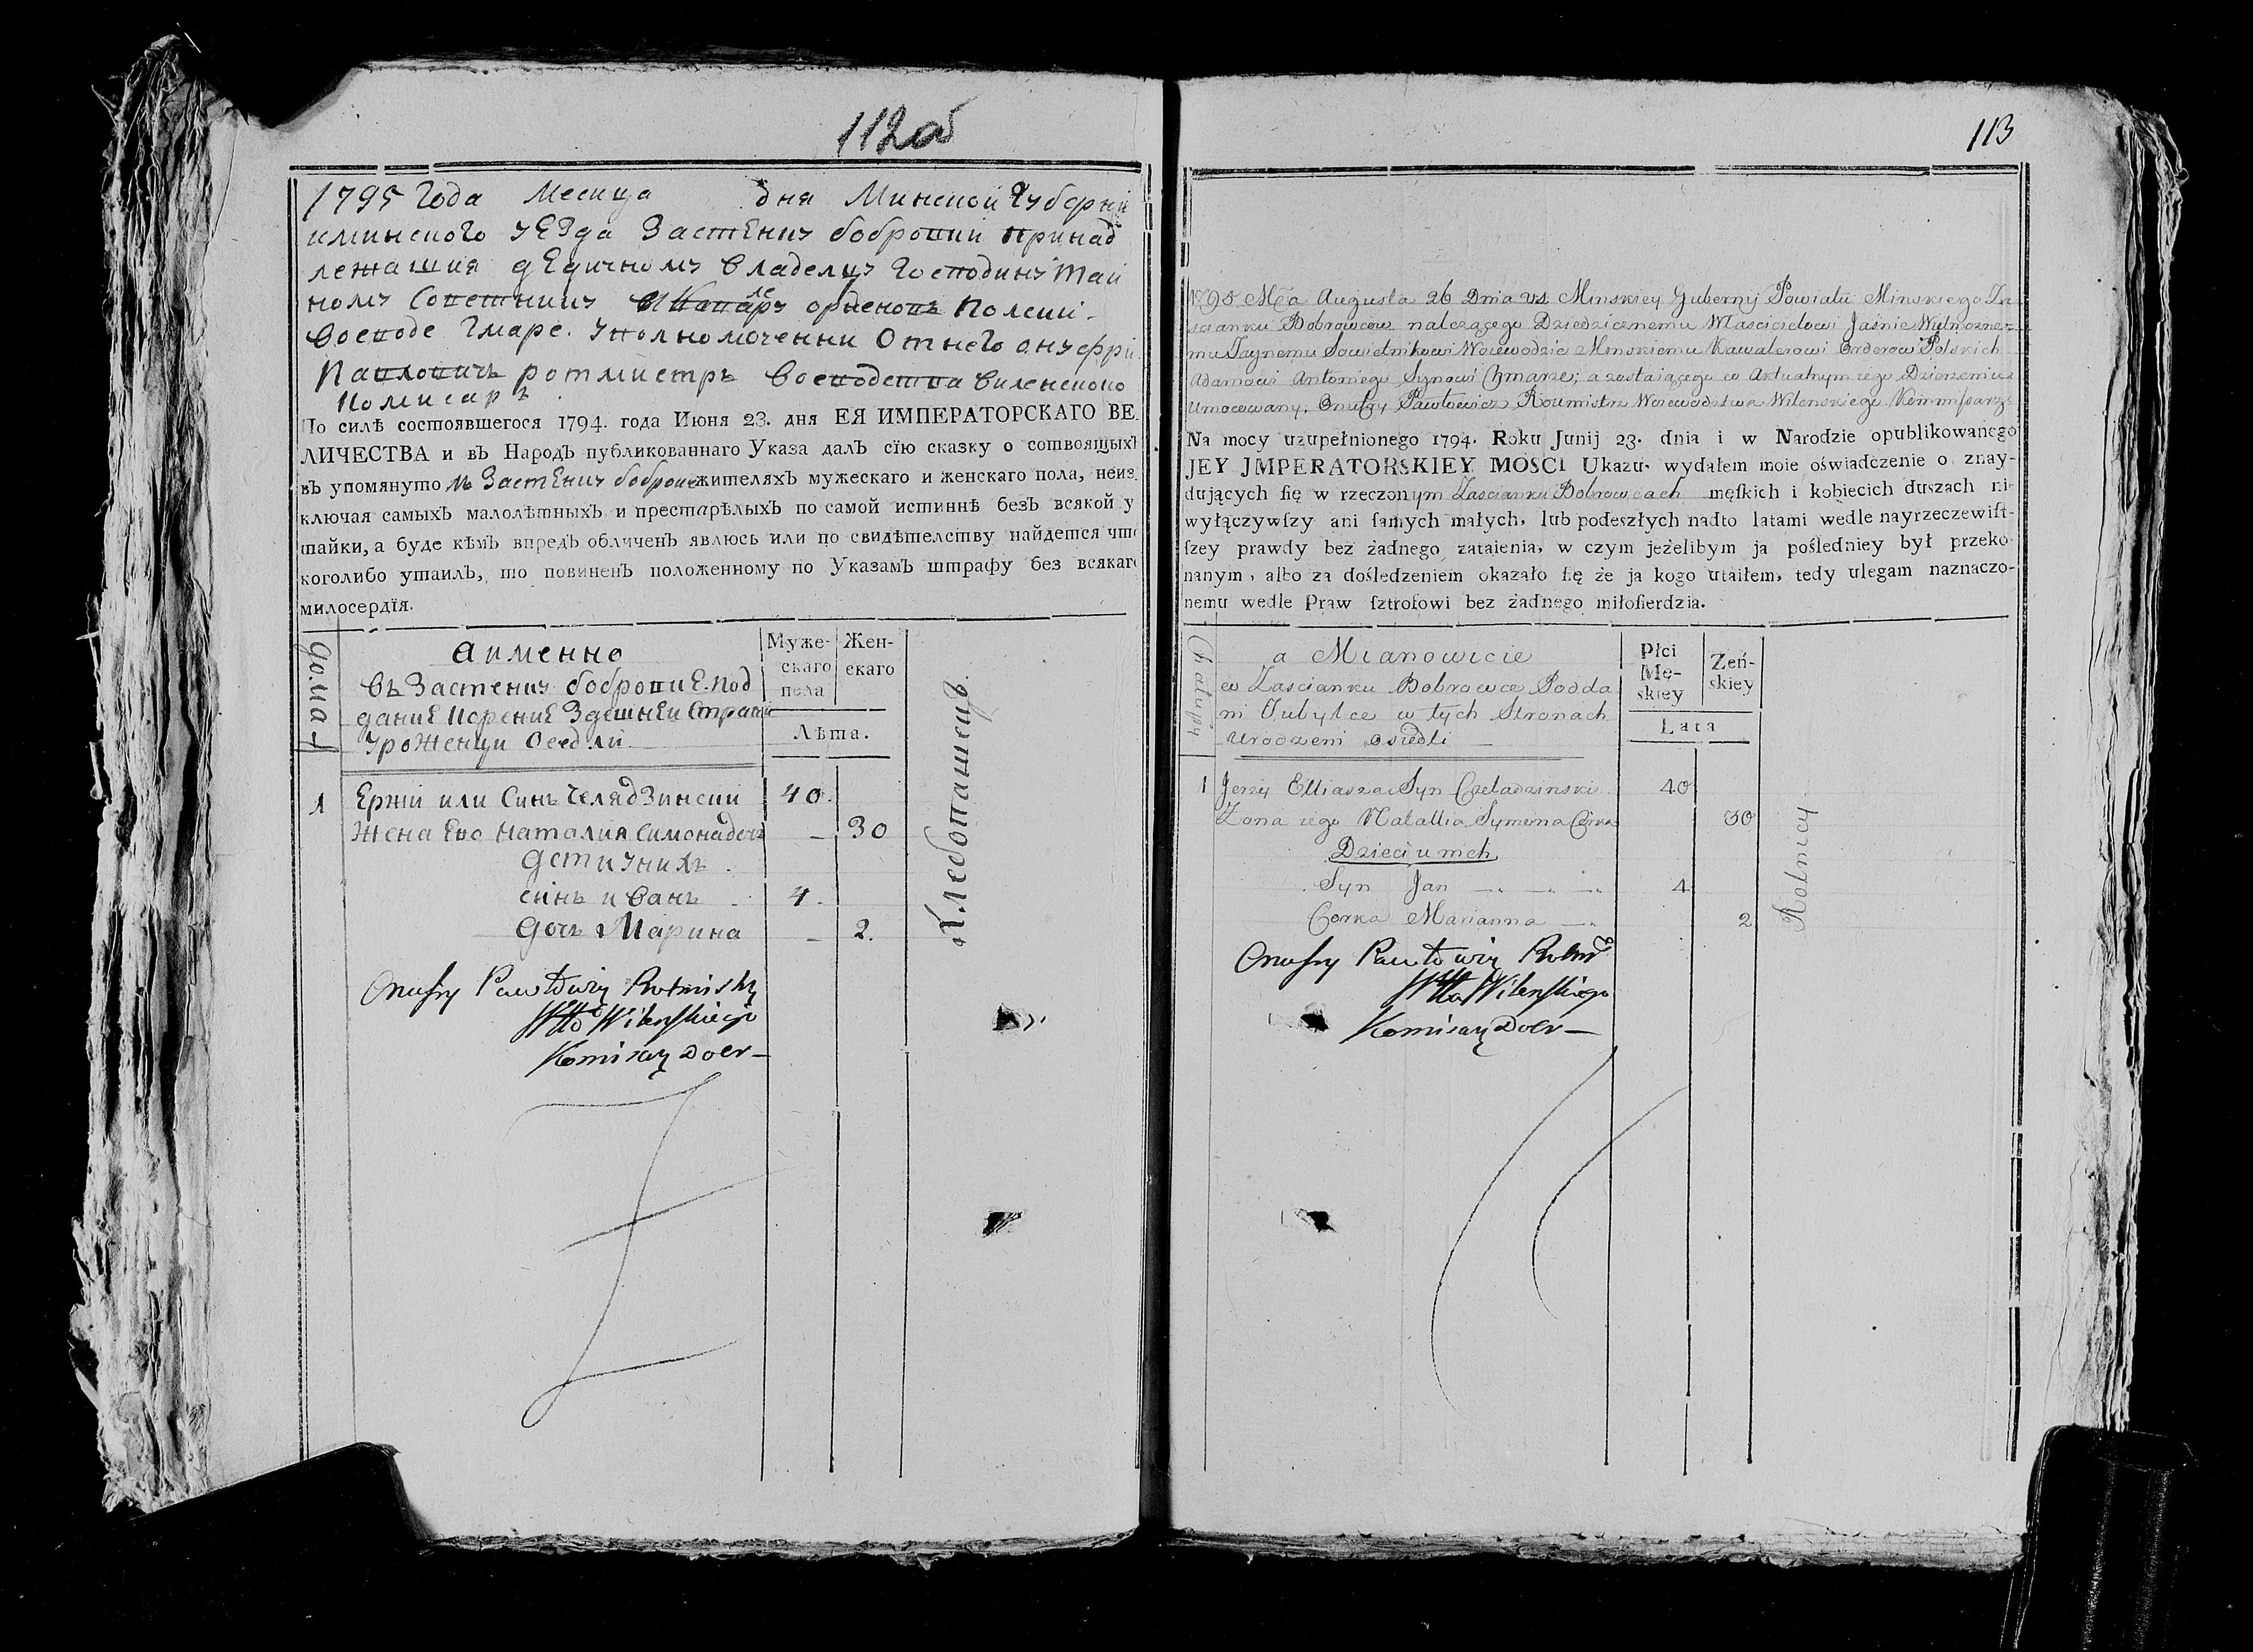 112об
1795 Года Месица дня Минской Губерни
иминского уезда Застенку бобровки принад
лежашия дедичному владелцу Господину Тай
ному Советнику орденовъ Полски-
воеводе Хмаре. уполномоченни Отнего онуфри
Павловичъ ротмистръ Воеводства виленского
Комисаръ
По силѣ состоявшегося 1794. года Июня 23. дня ЕЯ ИМПЕРАТОРСКАГО ВЕ
ЛИЧЕСТВА и въ Народъ публикованнаго Указа далъ сїю сказку о сотвоящыхъ
въ упомянуто мъ Застенку бобров жителяхъ мужескаго и женскаго пола, неиз
ключая самыхъ малолѣтныхъ и престарѣлыхъ по самой истиннѣ безъ всякой у
тайки, а буде кѣмъ впредъ обличенъ явлюсь или по свидѣтелству найдется что
коголибо утаилъ, то повиненъ положенному по Указамъ штрафу без всякаго
милосердїя.
дома
аименно
въ Застенку бобровке. под
дание корение здешней Страни
уроженци Оседли.
Муже-
скаго
пола
Жен-
скаго
Лѣта.
1 Ержи или Синъ Челядзинский 40.
Жена Ево Наталия Симонадочь — 30
дети унихъ.
синъ иванъ 4.
дочъ Марина — 2.
Хлебопашецъ.
Onufry Pawłowicz Rotmistrz
Wttd Wilenskiego
Komisarz Dobr—
113
1795 Mca Augusta 26 Dnia v.s. Minskiey Gubernij Powiatu Minskiego Za-
scianku Bobrowcow nalezącego Dziedzicznemu Włascicielowi Jaśnie Wielmozne-
mu Taynemu Sowietnikowi Woiewodzie Minskiemu Kawalerowi Orderow Polskich
Adamowi Antoniego Synowi Chmarze; a zostaiącego w Aktualnym iego Dzierzeniu
Umocowany, Onufry Pawłowicz Rotmistrz Woiewodztwa Wilenskiego Kommissarz
Na mocy uzupełnionego 1794. Roku Junij 23. dnia i w Narodzie opublikowanego
JEY JMPERATORSKIEY MOSCI Ukazu, wydałem moie oświadczenie o znay-
dujących ſię w rzeczonym Zascianku Bobrowcach męſkich i kobiecich duszach ni-
wyłączywſzy ani ſamych małych, lub podeszłych nadto latami wedle nayrzeczewiſt-
ſzey prawdy bez żadnego zataienia, w czym jeżelibym ja pośledniey był przeko-
nanym, albo za dośledzeniem okazało ſię że ja kogo utaiłem, tedy ulegam naznaczo-
nemu wedle Praw ſztrofowi bez żadnego miłoſierdzia.
Chałupy
a Mianowicie
w Zascianku Bobrowce Podda
ni Tubylce w tych Stronach
Urodzeni Osiedli —
Płci
Mę-
skiey
Żeń-
skiey
Lata
1 Jerzy Elliasza Syn Czeladzinski 40
Zona iego Natallia Symona Corka 30
Dzieci u nich
Syn Jan 4
Corka Marianna 2
Rolnicy
Onufry Pawłowicz Rotm
Wttd Wilenskiego
Komisarz Dobr—